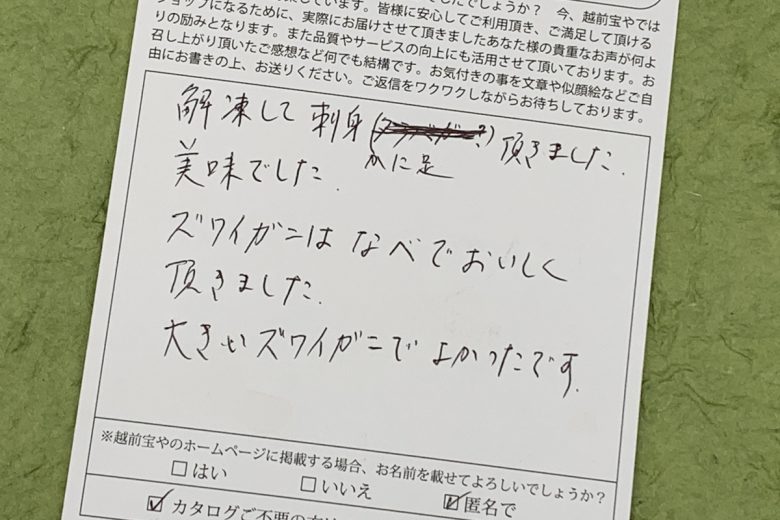 でしょうか？ 今、越前宝やでは
ョップになるために、実際にお届けさせて頂きましたあなた様の貴重なお声が何よ
ています。皆様に安心してご利用頂き、ご満足して頂ける
りの励みとなります。また品質やサービスの向上にも活用させて頂いております。お
召し上がり頂いたご感想など何でも結構です。お気付きの事を文章や似顔絵などご自
由にお書きの上、お送りください。ご返信をワクワクしながらお待ちしております。
解凍して 刺身( ) 頂きました.
かに足
美味でした.
ズワイガニは なべで おいしく
頂きました.
大きいズワイガニで よかったです.
※越前宝やのホームページに掲載する場合、お名前を載せてよろしいでしょうか？
□はい □いいえ ☑匿名で
☑カタログご不要の方は